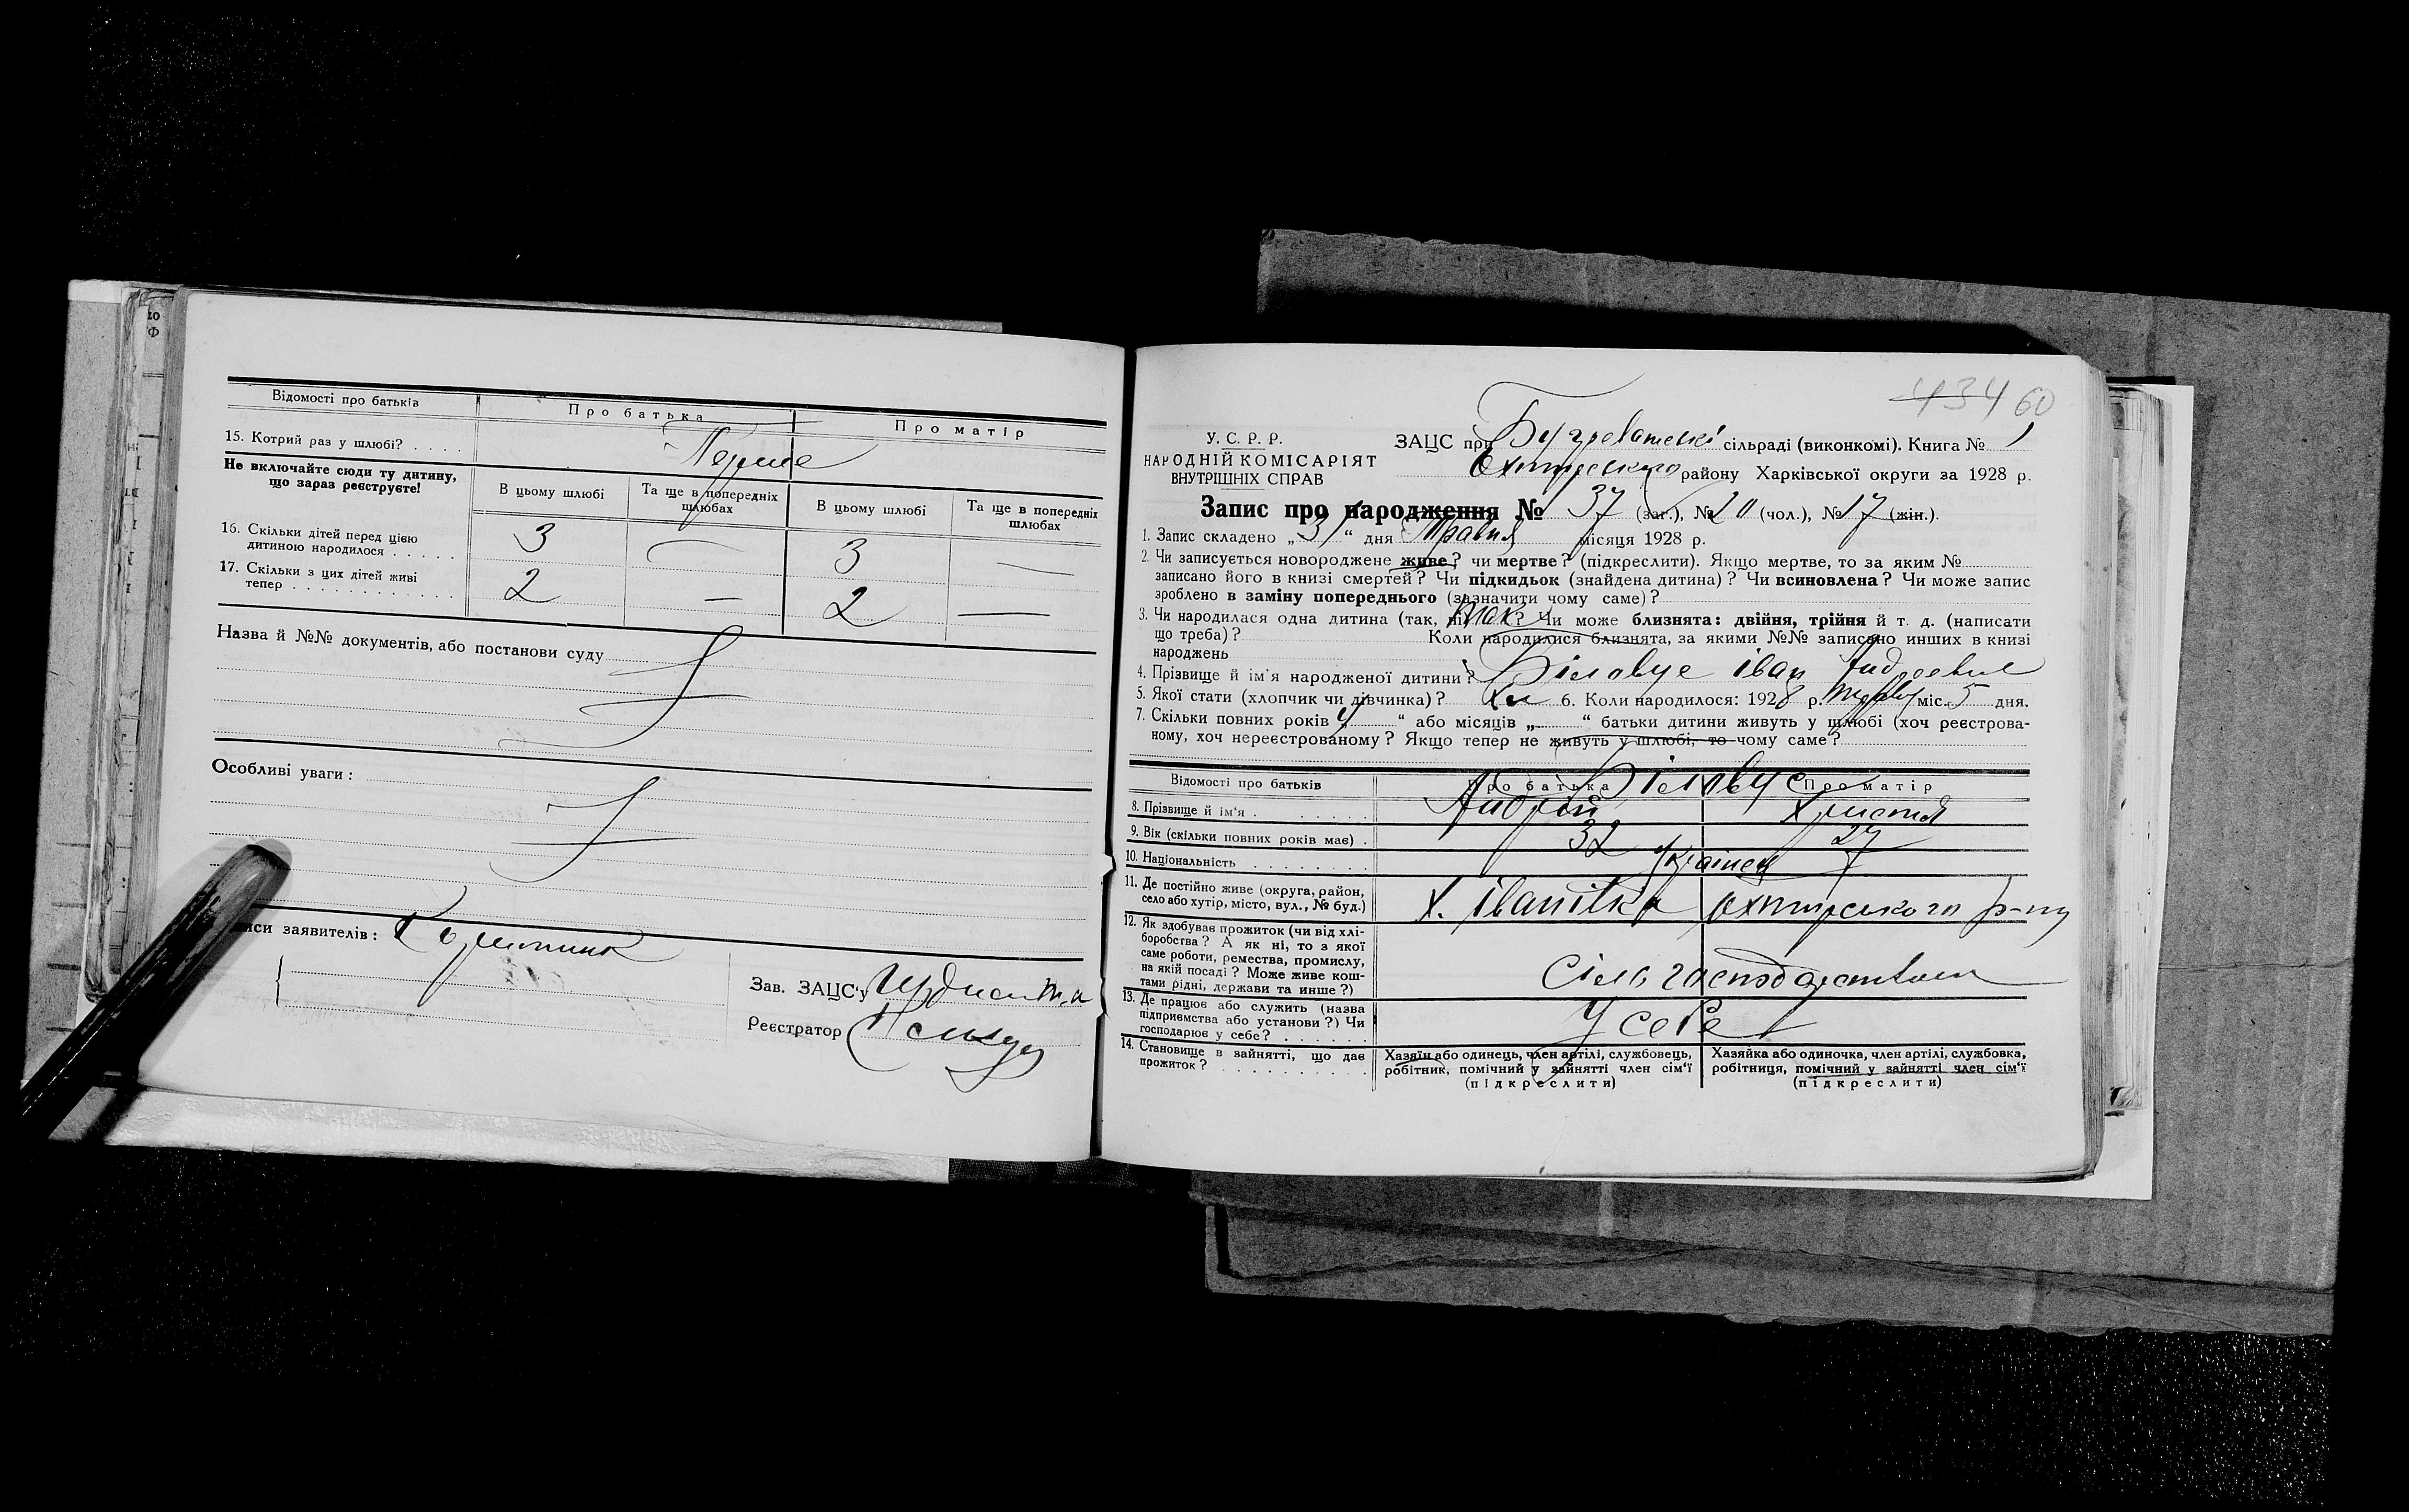 Відомості про батьків
Про батька
Про матір
15. Котрий раз у шлюбі? . . . .
Перше
Не включайте сюди ту дитину,
що зараз реєструєте!
В цьому шлюбі
Та ще в попередніх
шлюбах
В цьому шлюбі
Та ще в попередніх
шлюбах
16. Скільки дітей перед цією
дитиною народилося . . . . .
3
—
3
—
17. Скільки з цих дітей живі
тепер . . . . . . . . . . . .
2
—
2
—
Назва й №№ документів, або постанови суду
Особливі уваги:
иси заявителів:
Зав. ЗАЦС'у
Реєстратор
434 60
У. С. Р. Р.
НАРОДНІЙ КОМІСАРІЯТ
ВНУТРІШНІХ СПРАВ
ЗАЦС при Бугреватські сільраді (виконкомі). Книга № 1
Охтирського району Харківської округи за 1928 р.
Запис про народження № 37 (заг.), № 20 (чол.), № 17 (жін.).
1. Запис складено „ 3 “ дня Травня місяця 1928 р.
2. Чи записується новороджене живе? чи мертве? (підкреслити). Якщо мертве, то за яким №
записано його в книзі смертей? Чи підкидьок (знайдена дитина)? Чи всиновлена? Чи може запис
зроблено в заміну попереднього (зазначити чому саме)?
3. Чи народилася одна дитина (так, ні) так? Чи може близнята: двійня, трійня й т. д. (написати
що треба)? Коли народилися близнята, за якими №№ записано инших в книзі
народжень
4. Прізвище й ім'я народженої дитини? Біловус Іван Андреевич
5. Якої стати (хлопчик чи дівчинка)? Хл 6. Коли народилося: 1928 р. міс. 5 дня.
7. Скільки повних років „ 4 “ або місяців „ “ батьки дитини живуть у шлюбі (хоч реєстрова-
ному, хоч нереєстрованому? Якщо тепер не живуть у шлюбі, то чому саме?
Відомості про батьків
Про батька
Про матір
Біловус
8. Прізвище й ім'я . . . . . . . .
Андрій
Христя
9. Вік (скільки повних років має) .
32
27
10. Національність . . . . . . .
Українец
11. Де постійно живе (округа, район,
село або хутір, місто, вул., № буд.)
х. Іванівка Охтирського р-ну
12. Як здобуває прожиток (чи від хлі-
боробства? А як ні, то з якої
саме роботи, ремества, промислу,
на якій посаді? Може живе кош-
тами рідні, держави та инше?)
Сіль господарством
13. Де працює або служить (назва
підприємства або установи?) Чи
господарює у себе? . . . . . .
У себе
14. Становище в зайнятті, що дає
прожиток? . . . . . . . . . .
Хазяїн або одинець, член артілі, службовець,
робітник, помічний у зайнятті член сім'ї
(підкреслити)
Хазяйка або одиночка, член артілі, службовка,
робітниця, помічний у зайнятті член сім'ї
(підкреслити)